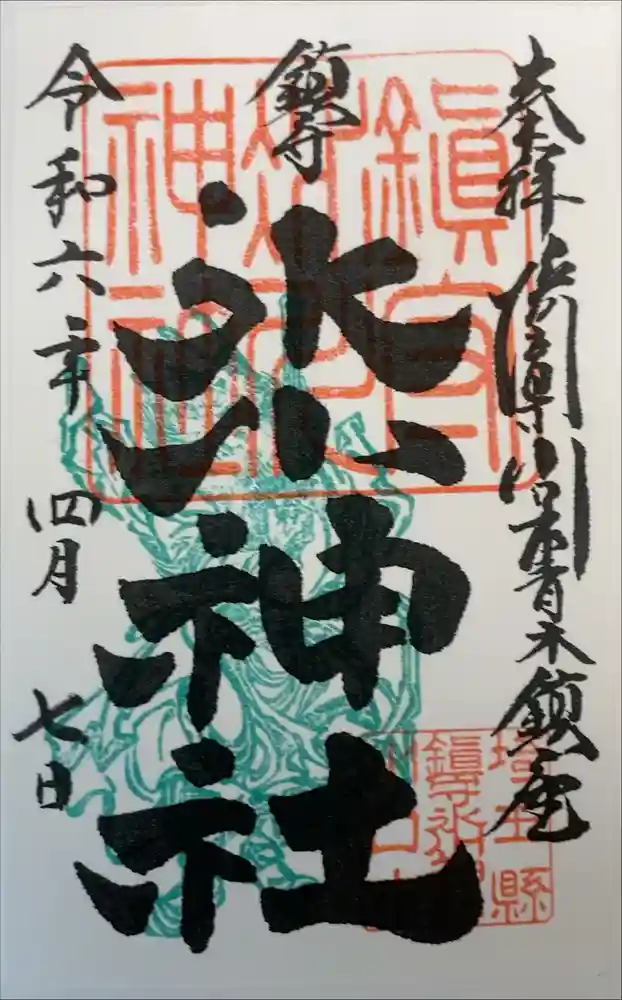 奉拝 埼玉県川口市青木鎮座
鎮守
氷川神社
令和六年 四月 七日
鎮守
氷川
神社
埼玉縣
川口市